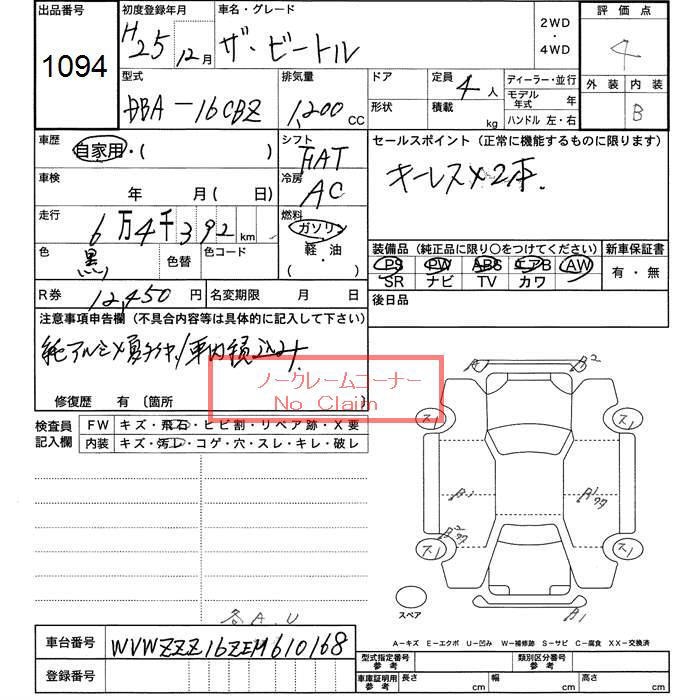 出品番号
1094
初度登録年月
H25年12月
車名・グレード
ザ・ビートル
2WD
・
4WD
評価点
4
外装 内装
B
型式
DBA-16CBZ
排気量
1,200 CC
ドア
形状
定員 4 人
積載 kg
ディーラー・並行
モデル年式 年
ハンドル 左・右
車歴
自家用・( )
シフト
FAT
セールスポイント (正常に機能するものに限ります)
キーレス×2本.
車検
年 月( 日)
冷房
AC
走行
6万4千392km
燃料
ガソリン
軽・油
・( )
色
黒
色替
色コード
装備品 (純正品に限り○をつけてください)
PS PW ABS エアB AW
SR ナビ TV カワ
新車保証書
有・無
R券 12,450 円
名変期限 月 日
後日品
注意事項申告欄 (不具合内容等は具体的に記入して下さい)
修復歴 有 〔箇所 〕
ノークレームコーナー
No Claim
検査員
記入欄
FW キズ・飛石・ヒビ割・リペア跡・X要
内装 キズ・汚レ・コゲ・穴・スレ・キレ・破レ
A B2
ス1 ス1
B1 B1
B2
ス1 ス1
スペア
B1
各A.U
車台番号 WVWZZZ16ZEM610168
登録番号
A−キズ E−エクボ U−凹み W−補修跡 S−サビ C−腐食 XX−交換済
型式指定番号
参考
類別区分番号
参考
車庫証明用
参考
長さ cm 幅 cm 高さ cm